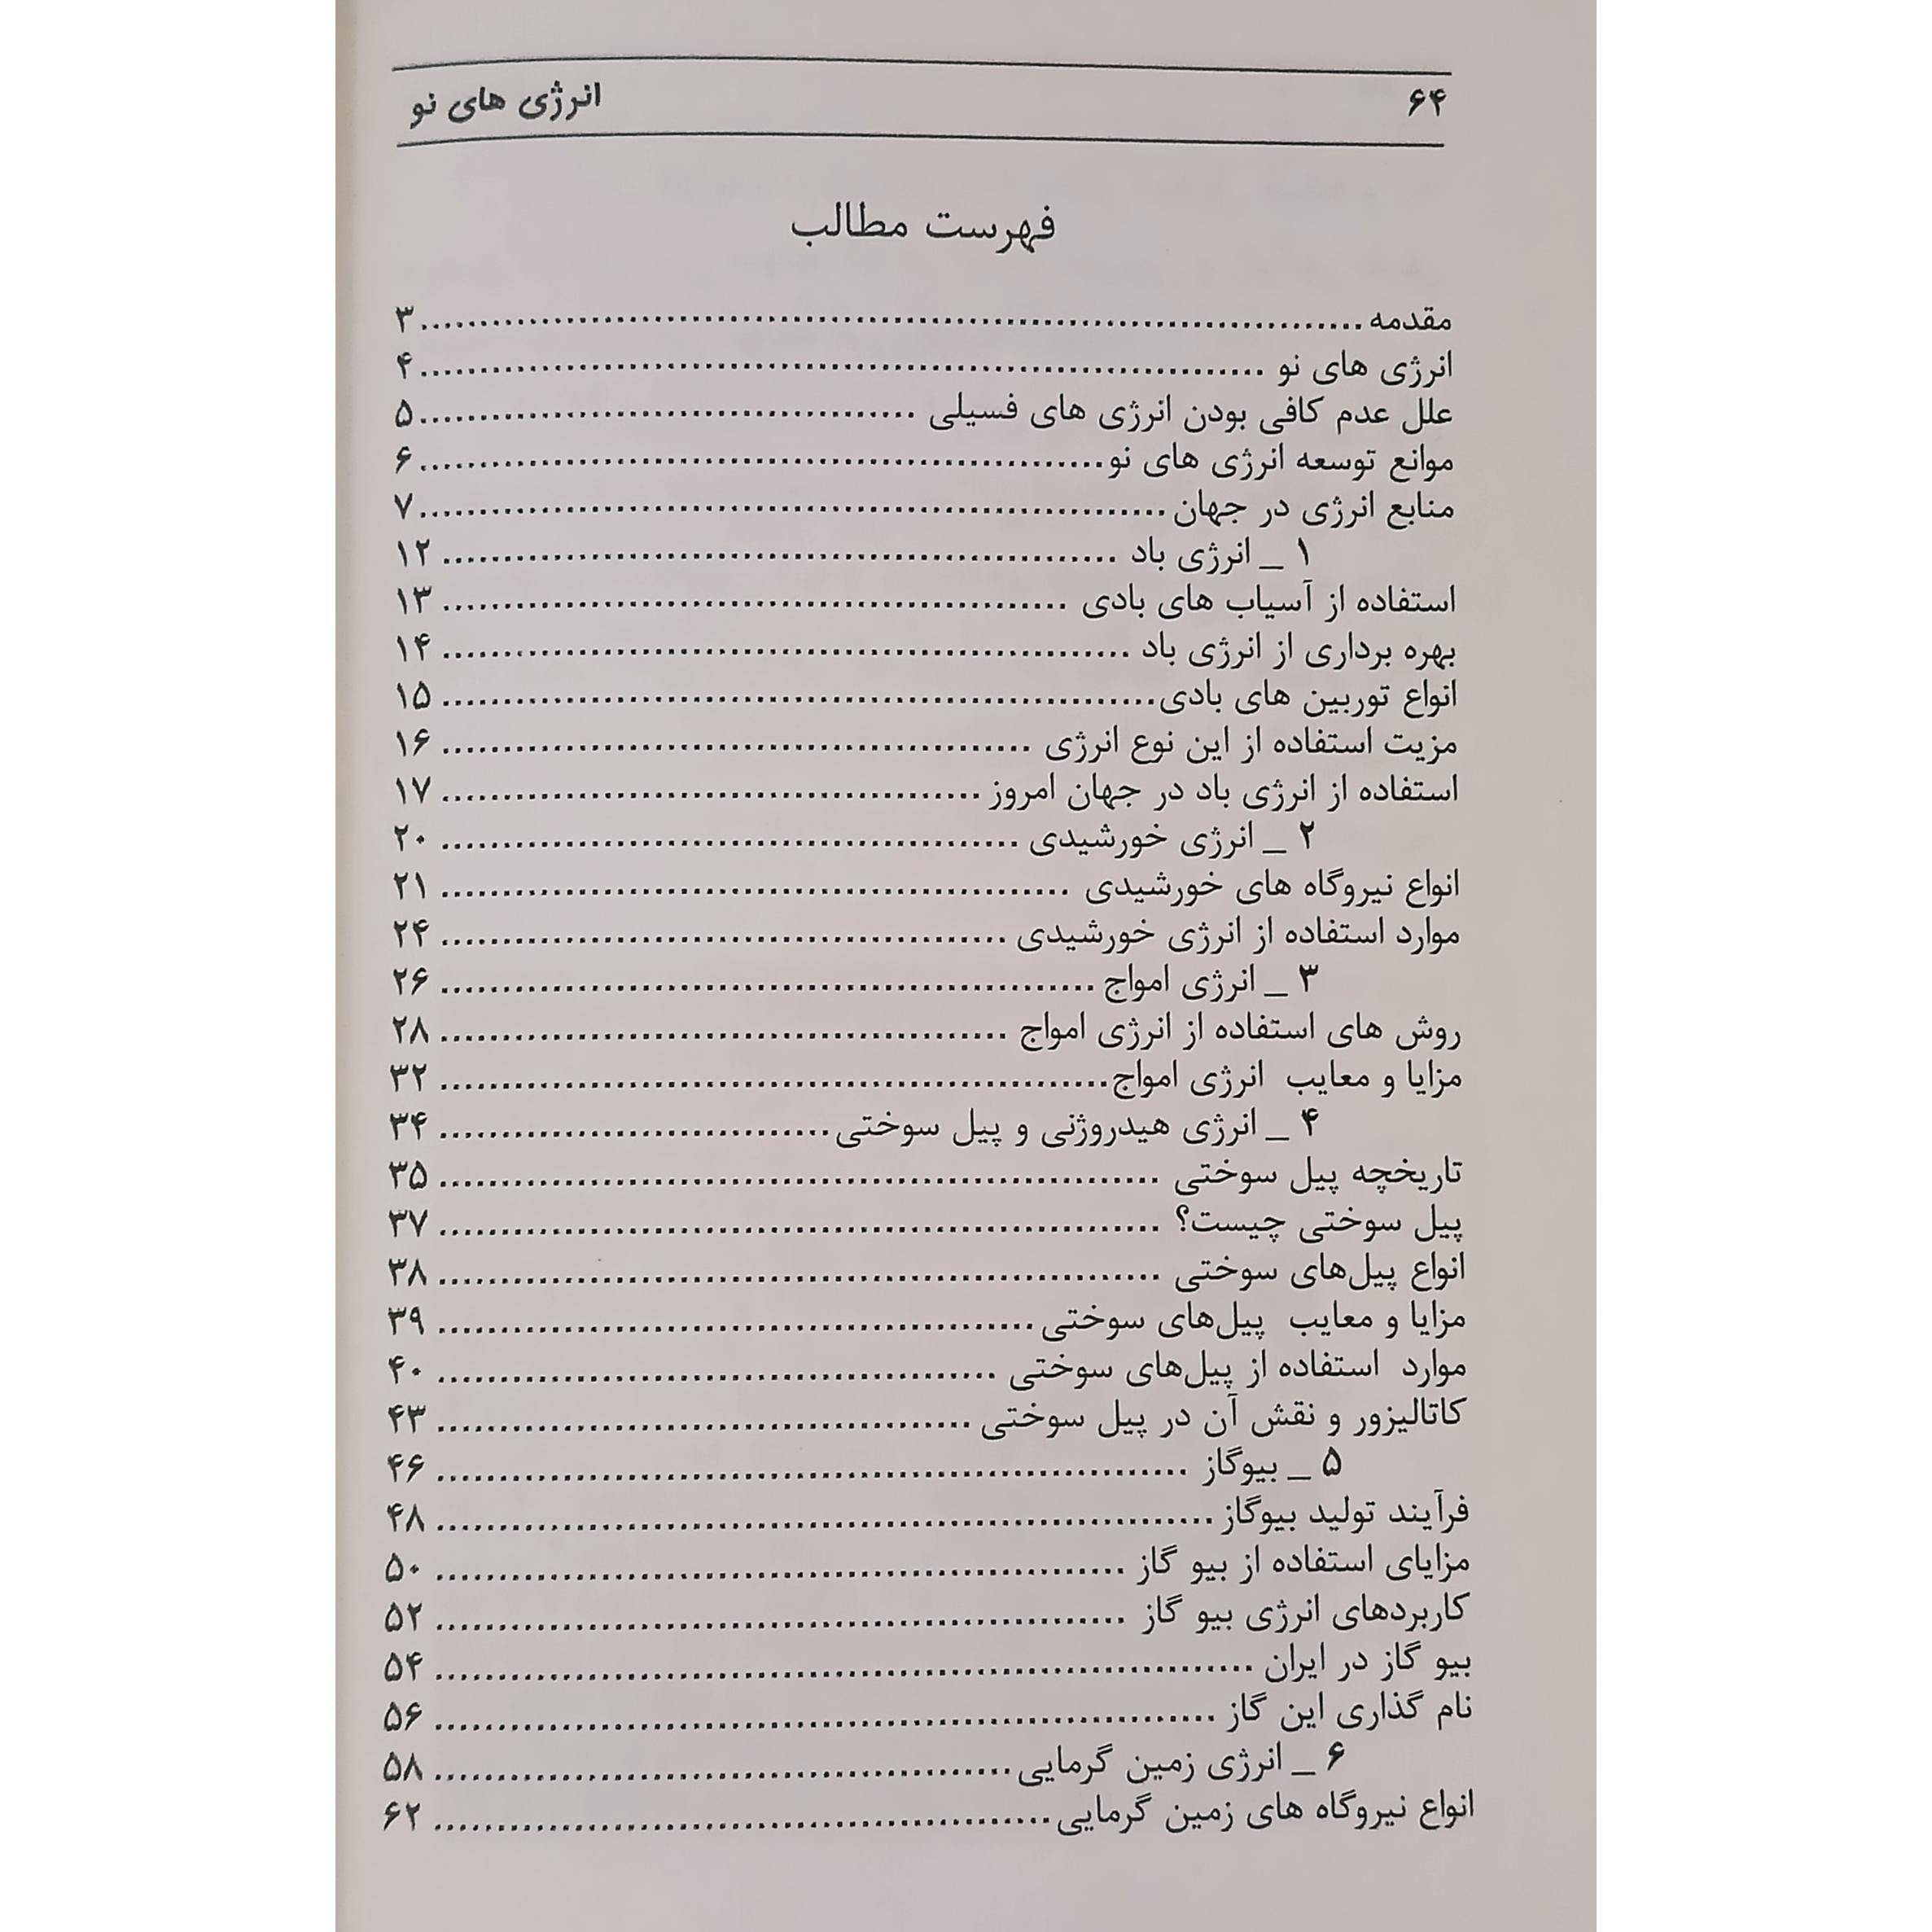 ۶۴ انرژی های نو
فهرست مطالب
مقدمه ۳
انرژی های نو ۴
علل عدم کافی بودن انرژی های فسیلی ۵
موانع توسعه انرژی های نو ۶
منابع انرژی در جهان ۷
۱ _ انرژی باد ۱۲
استفاده از آسیاب های بادی ۱۳
بهره برداری از انرژی باد ۱۴
انواع توربین های بادی ۱۵
مزیت استفاده از این نوع انرژی ۱۶
استفاده از انرژی باد در جهان امروز ۱۷
۲ _ انرژی خورشیدی ۲۰
انواع نیروگاه های خورشیدی ۲۱
موارد استفاده از انرژی خورشیدی ۲۴
۳ _ انرژی امواج ۲۶
روش های استفاده از انرژی امواج ۲۸
مزایا و معایب انرژی امواج ۳۲
۴ _ انرژی هیدروژنی و پیل سوختی ۳۴
تاریخچه پیل سوختی ۳۵
پیل سوختی چیست؟ ۳۷
انواع پیل‌های سوختی ۳۸
مزایا و معایب پیل‌های سوختی ۳۹
موارد استفاده از پیل‌های سوختی ۴۰
کاتالیزور و نقش آن در پیل سوختی ۴۳
۵ _ بیوگاز ۴۶
فرآیند تولید بیوگاز ۴۸
مزایای استفاده از بیو گاز ۵۰
کاربردهای انرژی بیو گاز ۵۲
بیو گاز در ایران ۵۴
نام گذاری این گاز ۵۶
۶ _ انرژی زمین گرمایی ۵۸
انواع نیروگاه های زمین گرمایی ۶۲